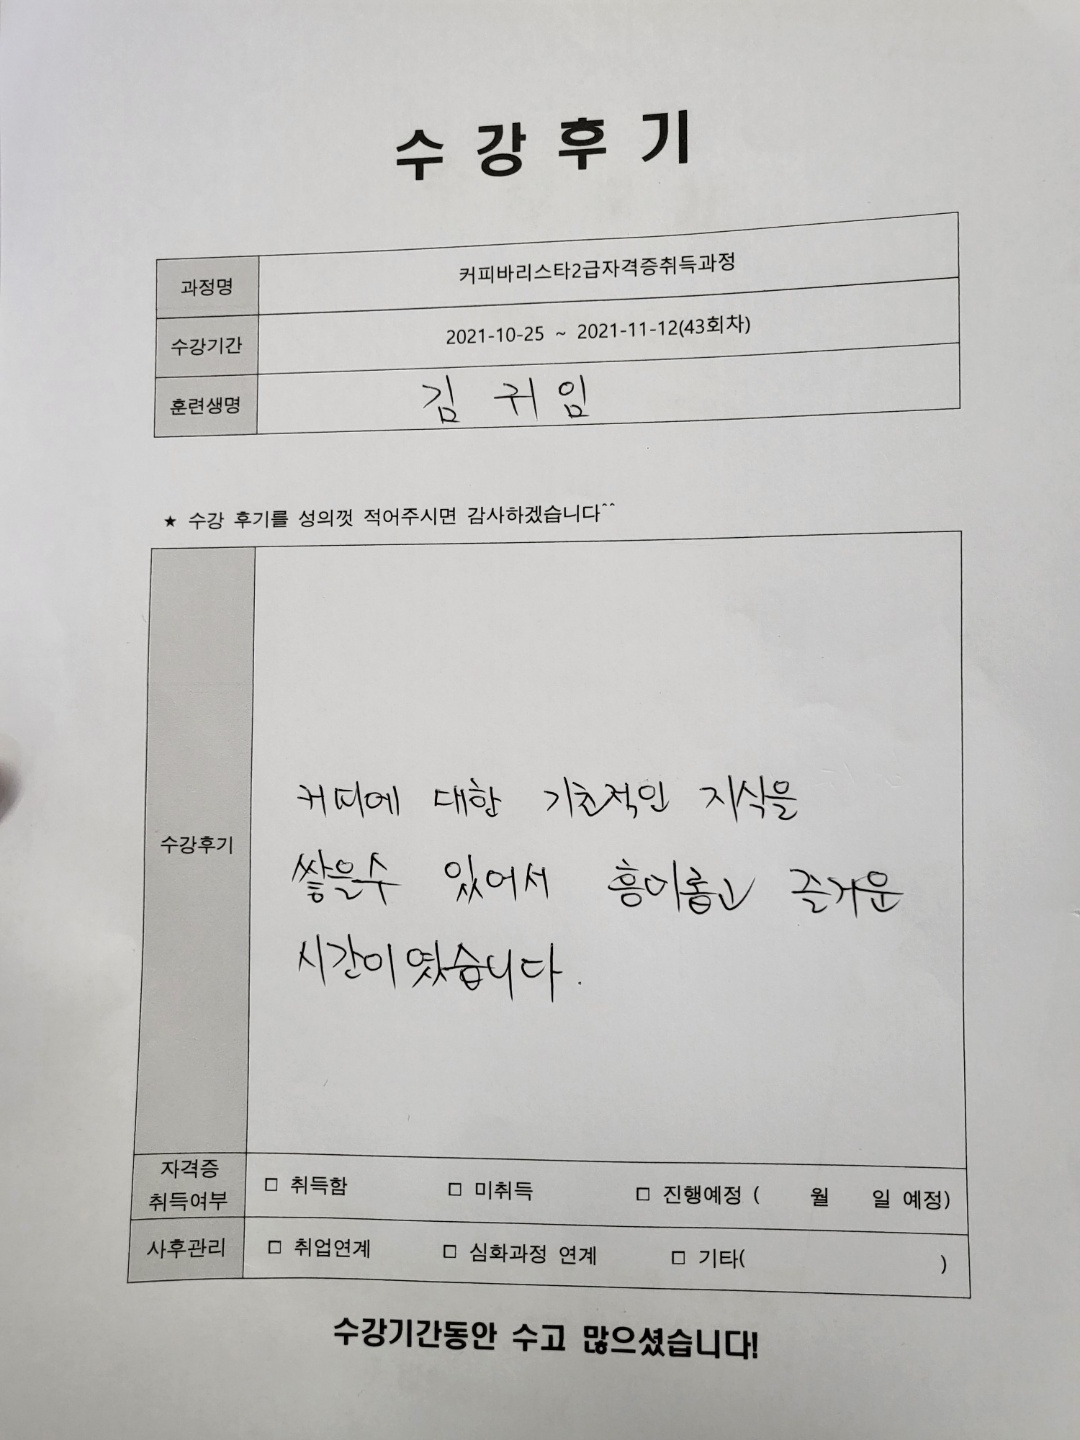 수강후기
과정명 커피바리스타2급자격증취득과정
수강기간 2021-10-25 ~ 2021-11-12(43회차)
훈련생명 김귀임
★ 수강 후기를 성의껏 적어주시면 감사하겠습니다^^
수강후기
커피에 대한 기초적인 지식을
쌓을수 있어서 흥미롭고 즐거운
시간이였습니다.
자격증 취득여부 □ 취득함 □ 미취득 □ 진행예정 ( 월 일 예정)
사후관리 □ 취업연계 □ 심화과정 연계 □ 기타( )
수강기간동안 수고 많으셨습니다!